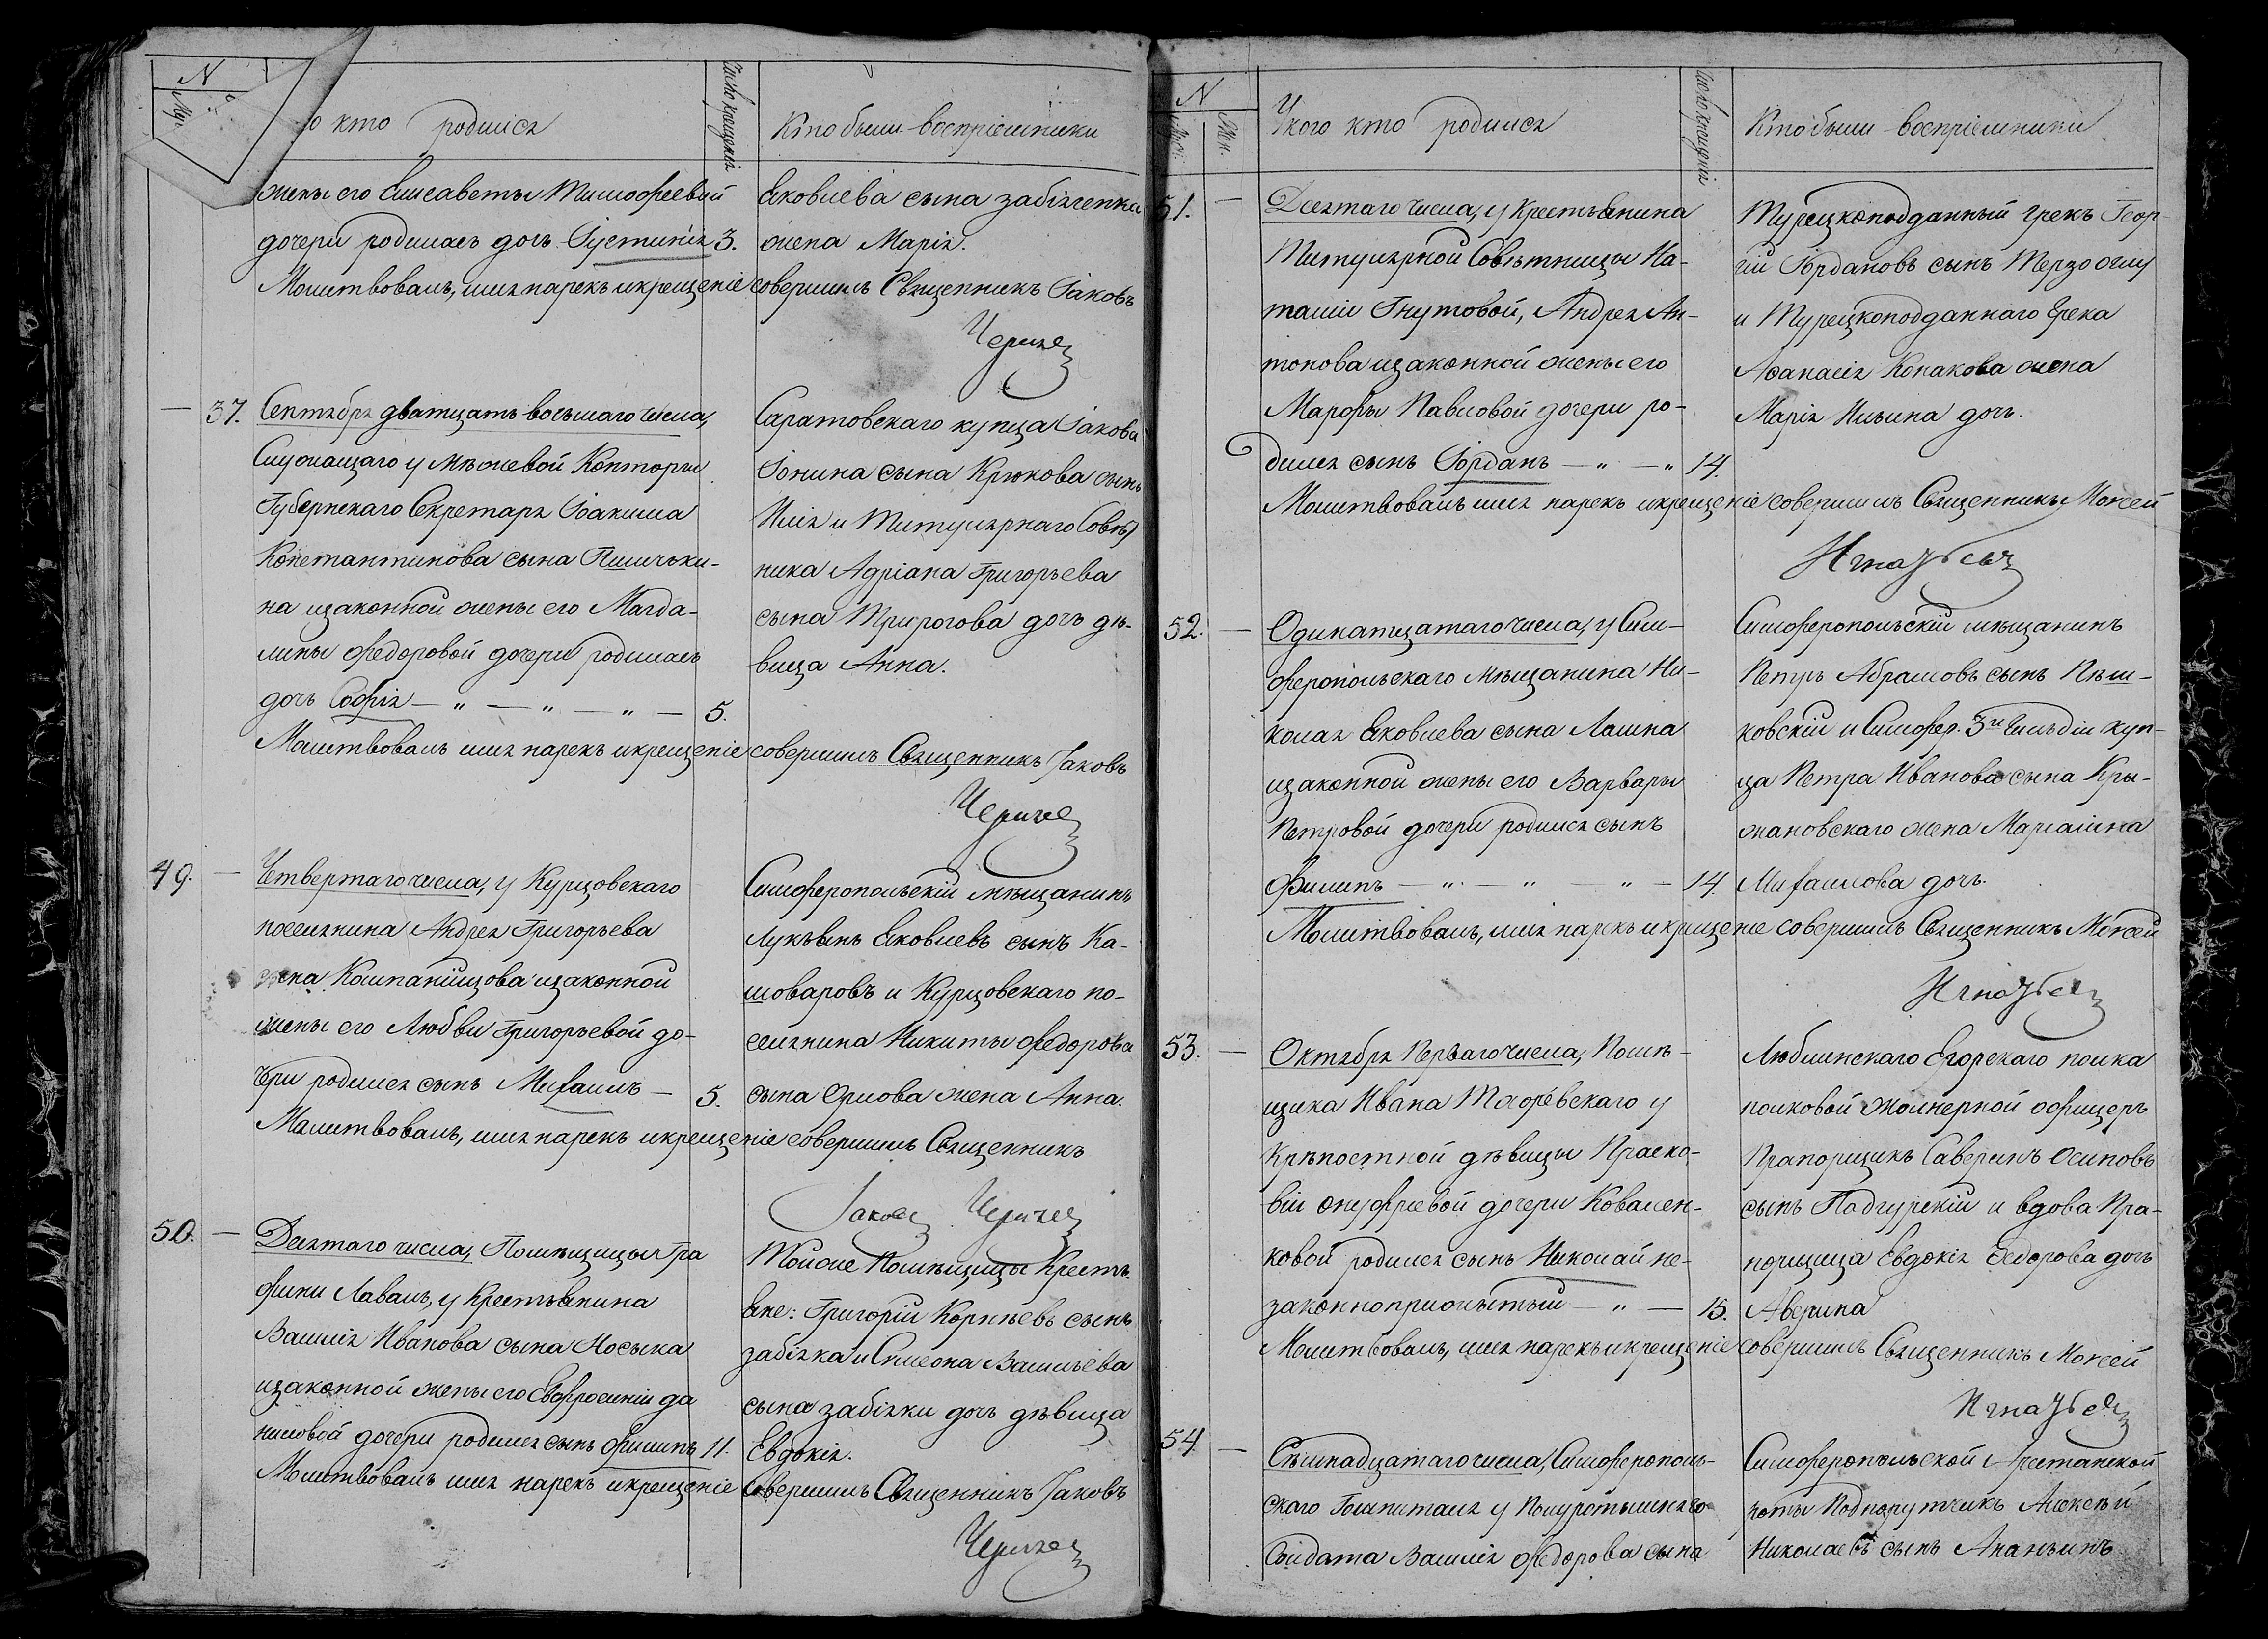 N
Муж.
о кто родился
Число крещенія
Кто были воспріемники
жены его Елисаветы Тимофеевой
дочери родилась дочь Іустинія 3.
Молитвовалъ, имя нарекъ и крещеніе совершилъ Священникъ Іаковъ
Яковлева сына забіяченка
жена Марія.
37. Сентября дватцать восьмаго числа,
Служащаго у межевой Конторы
Губернскаго Секретаря Іоакима
Константинова сына
на и законной жены его Магда-
лины Федоровой дочери родилась
дочь Софія — „ — „ — „ — 5.
Саратовскаго купца Іакова
Іонина сына Крюкова сынъ
Илія и Титулярнаго Совѣт
ника Адріана Григорьева
сына Трирогова дочь дѣ-
вица Анна.
Молитвовалъ имя нарекъ и крещеніе совершилъ Священникъ Іаковъ
49. — Четвертаго числа, у Курцовскаго
поселянина Андрея Григорьева
сына Компанийцова и законной
жены его Любви Григорьевой до-
чери родился сынъ Михаилъ — 5.
Симферопольскій мѣщанинъ
Лукьянъ Яковлевъ сынъ Ка-
шоваровъ и Курцовскаго по-
селянина Никиты Федорова
сына Орлова жена Анна.
Молитвовалъ, имя нарекъ и крещеніе совершилъ Священникъ
Іаковъ
50. — Десятаго числа, Помѣщицы Гра
фини Лаваль, у Крестьянина
Василія Иванова сына Носыка
и законной жены его Евфросиніи Да
ниловой дочери родился сынъ Филипъ 11.
Тойже Помѣщицы Кресть-
яне: Григорій Корнѣевъ сынъ
забіяка и Симеона Васильева
сына забіяки дочь дѣвица
Евдокія.
Молитвовалъ имя нарекъ и крещеніе совершилъ Священникъ Іаковъ
N
Муж.
Жен.
У кого кто родился
Число крещенія
Кто были воспріемники
51. — Десятаго числа, у Крестьянина
Титулярной Совѣтницы На-
таліи Гнутовой, Андрея Ан-
тонова и законной жены его
Марфы Павловой дочери ро-
дился сынъ Іорданъ — „ — „ 14.
Турецкоподданный грекъ Геор-
гій Іордановъ сынъ Терзо оглу
и Турецкоподданнаго Грека
Афанасія Конакова жена
Марія Ильина дочь.
Молитвовалъ имя нарекъ и крещеніе совершилъ Священникъ Моѵсей
Игнатьевъ
52. — Одинатцатаго числа, у Сим-
феропольскаго мѣщанина Ни-
колая Яковлева сына Лашна
и законной жены его Варвары
Петровой дочери родился сынъ
Филипъ — „ — „ — „ — 14.
Симферопольскій мѣщанинъ
Петръ Абрамовъ сынъ Пѣш-
ковскій и Симфер. 3й Гильдіи куп-
ца Петра Иванова сына Кры-
жановскаго жена Маріанна
Михаилова дочь.
Молитвовалъ, имя нарекъ и крещеніе совершилъ Священникъ Моѵсей
Игнатьевъ
53. — Октября Перваго числа, Помѣ-
щика Ивана у
Крѣпостной дѣвицы Праско-
віи Онуфріевой дочери Ковален-
ковой родился сынъ Николай не-
законноприжытый — „ — 15.
Люблинскаго Егорскаго полка
полковой жолнерной офицеръ
Прапорщикъ Саверинъ Осиповъ
сынъ Падгурскій и вдова Пра-
порщица Евдокія Федорова дочь
Аверина
Молитвовалъ, имя нарекъ и крещеніе совершилъ Священникъ Моѵсей
Игнатьевъ
54. — Сѣмнадцатаго числа, Симферополь-
скаго Гошпиталя у
Солдата Василія Федорова сына
Симферопольской Арестанской
роты Подпорутчикъ Алексѣй
Николаевъ сынъ Ананьинъ